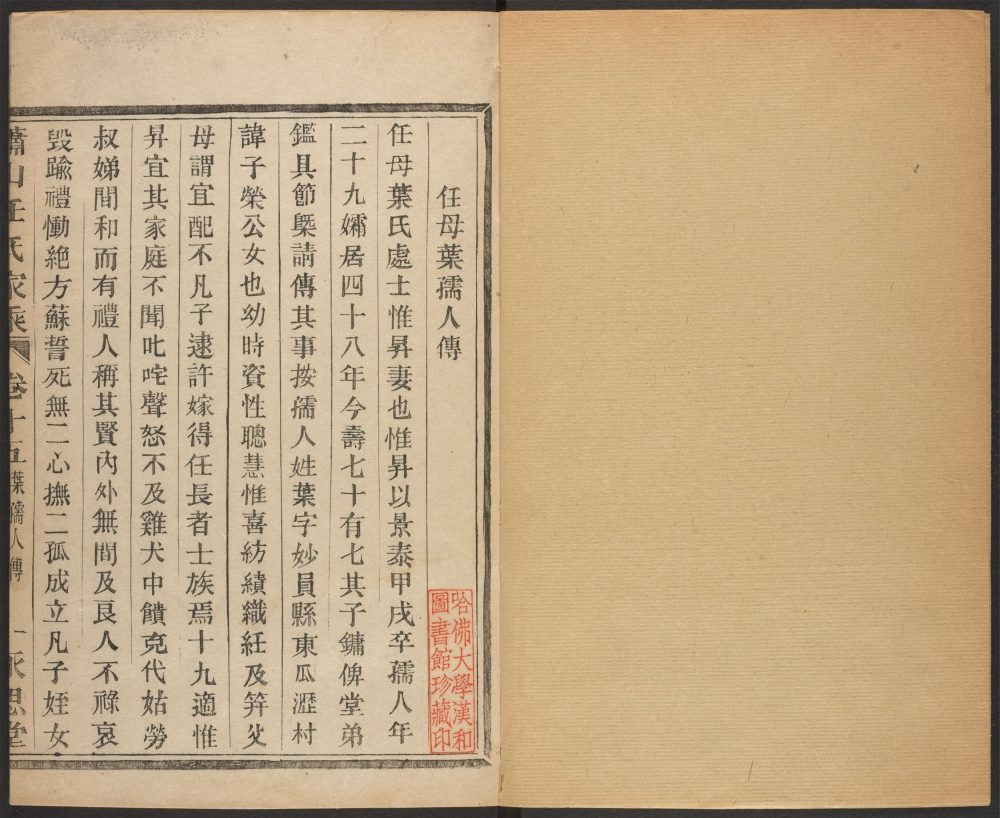 任母葉孺人傳
任母葉氏處士惟昇妻也惟昇以景泰甲戌卒孺人年
二十九孀居四十八年今壽七十有七其子鏞俾堂弟
鑑具節槩請傳其事按孺人姓葉字妙員縣東瓜瀝村
諱子榮公女也幼時資性聰慧惟喜紡績織紝及笄父
母謂宜配不凡子逮許嫁得任長者士族焉十九適惟
昇宜其家庭不聞叱咤聲怒不及雞犬中饋克代姑勞
叔娣間和而有禮人稱其賢內外無間及良人不祿哀
毀踰禮慟絕方蘇誓死無二心撫二孤成立凡子姪女
蕭山任氏家乘 卷十五 葉孺人傳 一 永思堂
哈佛大學漢和
圖書館珍藏印